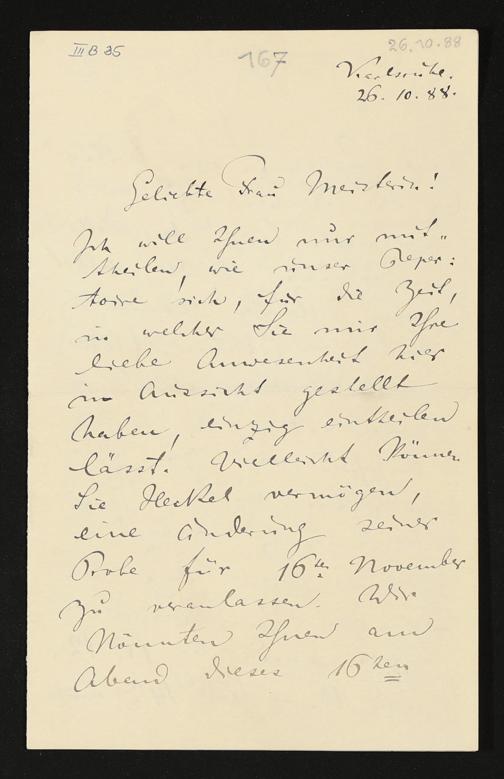 III B 35
167
26.10.88
Karlsruhe.
26. 10. 88.
Geliebte Frau Meisterin!
Ich will Ihnen nur mit-
theilen, wie unser Reper:
toire sich, für die Zeit,
in welcher Sie mir Ihre
liebe Anwesenheit hier
in Aussicht gestellt
haben, einzig eintheilen
lässt. Vielleicht können
Sie Heckel vermögen,
eine Änderung seiner
Probe für 16ten November
zu veranlassen. Wir
könnten Ihnen am
Abend dieses 16ten